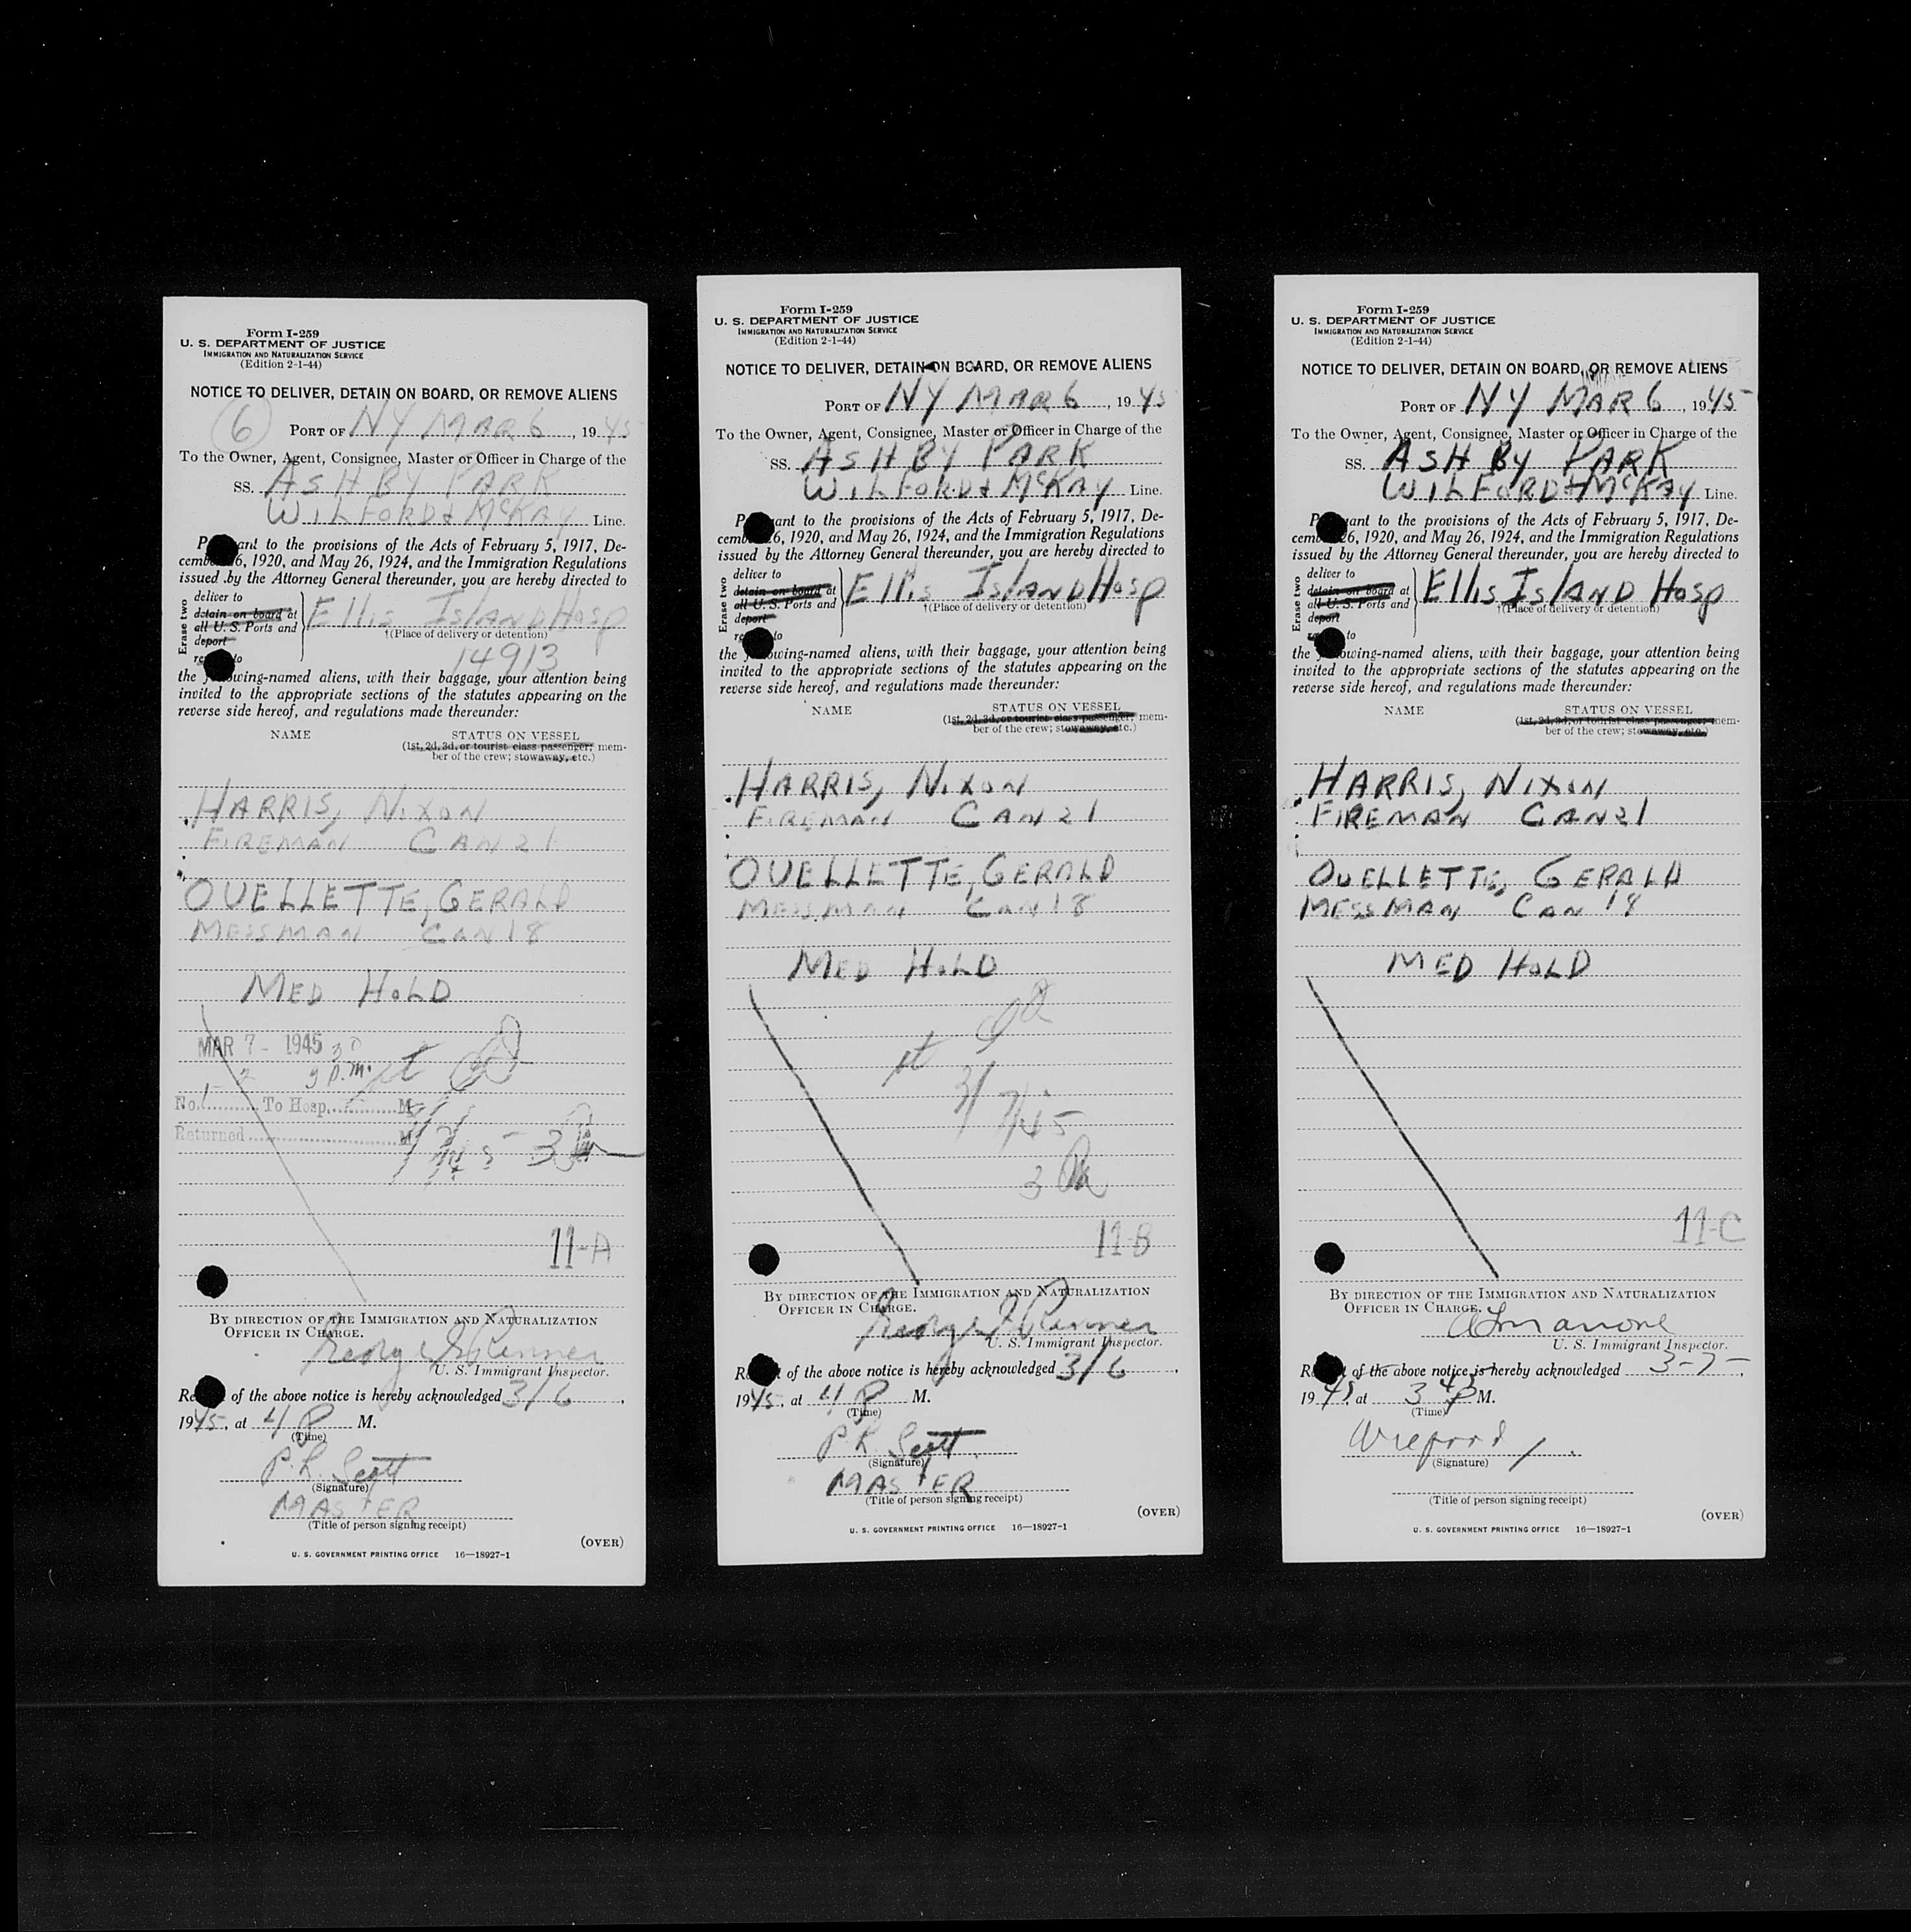 Form I-259
U. S. DEPARTMENT OF JUSTICE
IMMIGRATION AND NATURALIZATION SERVICE
(Edition 2-1-44)
NOTICE TO DELIVER, DETAIN ON BOARD, OR REMOVE ALIENS
6
PORT OF NY MAR 6, 1945
To the Owner, Agent, Consignee, Master or Officer in Charge of the
SS. ASHBY PARK
WILFORD & McKAY Line.
ant to the provisions of the Acts of February 5, 1917, De-
cemb 6, 1920, and May 26, 1924, and the Immigration Regulations
issued by the Attorney General thereunder, you are hereby directed to
Erase two
deliver to
detain on board at
all U. S. Ports and
deport
to
Ellis Island Hosp
†(Place of delivery or detention)
14913
the owing-named aliens, with their baggage, your attention being
invited to the appropriate sections of the statutes appearing on the
reverse side hereof, and regulations made thereunder:
NAME STATUS ON VESSEL
(1st, 2d, 3d, or tourist class passenger; mem-
ber of the crew; stowaway, etc.)
HARRIS, NIXON
FIREMAN CAN 21
OUELLETTE, GERALD
MESSMAN CAN 18
MED HOLD
MAR 7 - 1945 30
2 3 P.M.
No. 1 To Hosp. M
Returned M
11-A
BY DIRECTION OF THE IMMIGRATION AND NATURALIZATION
OFFICER IN CHARGE.
George
U. S. Immigrant Inspector.
Re of the above notice is hereby acknowledged 3/6,
1945, at 4 P M.
(Time)
P. R. Scott
(Signature)
MASTER
(Title of person signing receipt)
(OVER)
U. S. GOVERNMENT PRINTING OFFICE 16—18927-1
Form I-259
U. S. DEPARTMENT OF JUSTICE
IMMIGRATION AND NATURALIZATION SERVICE
(Edition 2-1-44)
NOTICE TO DELIVER, DETAIN ON BOARD, OR REMOVE ALIENS
PORT OF NY MAR 6, 1945
To the Owner, Agent, Consignee, Master or Officer in Charge of the
SS. ASHBY PARK
WILFORD & McKAY Line.
P ant to the provisions of the Acts of February 5, 1917, De-
cemb 6, 1920, and May 26, 1924, and the Immigration Regulations
issued by the Attorney General thereunder, you are hereby directed to
Erase two
deliver to
detain on board at
all U. S. Ports and
deport
re to
Ellis Island Hosp
†(Place of delivery or detention)
the owing-named aliens, with their baggage, your attention being
invited to the appropriate sections of the statutes appearing on the
reverse side hereof, and regulations made thereunder:
NAME STATUS ON VESSEL
(1st, 2d, 3d, or tourist class passenger; mem-
ber of the crew; stowaway, etc.)
HARRIS, NIXON
FIREMAN CAN 21
OUELLETTE, GERALD
MESSMAN CAN 18
MED HOLD
3/7/45
3
11-B
BY DIRECTION OF THE IMMIGRATION AND NATURALIZATION
OFFICER IN CHARGE.
George
U. S. Immigrant Inspector.
R of the above notice is hereby acknowledged 3/6,
1945, at 4 P M.
(Time)
P. R. Scott
(Signature)
MASTER
(Title of person signing receipt)
(OVER)
U. S. GOVERNMENT PRINTING OFFICE 16—18927-1
Form I-259
U. S. DEPARTMENT OF JUSTICE
IMMIGRATION AND NATURALIZATION SERVICE
(Edition 2-1-44)
NOTICE TO DELIVER, DETAIN ON BOARD, OR REMOVE ALIENS
PORT OF NY MAR 6, 1945
To the Owner, Agent, Consignee, Master or Officer in Charge of the
SS. ASHBY PARK
WILFORD & McKAY Line.
P ant to the provisions of the Acts of February 5, 1917, De-
cemb 26, 1920, and May 26, 1924, and the Immigration Regulations
issued by the Attorney General thereunder, you are hereby directed to
Erase two
deliver to
detain on board at
all U. S. Ports and
deport
to
Ellis Island Hosp
†(Place of delivery or detention)
the owing-named aliens, with their baggage, your attention being
invited to the appropriate sections of the statutes appearing on the
reverse side hereof, and regulations made thereunder:
NAME STATUS ON VESSEL
(1st, 2d, 3d, or tourist class passenger; mem-
ber of the crew; stowaway, etc.)
HARRIS, NIXON
FIREMAN CAN 21
OUELLETTE, GERALD
MESSMAN CAN 18
MED HOLD
11-C
BY DIRECTION OF THE IMMIGRATION AND NATURALIZATION
OFFICER IN CHARGE.
U. S. Immigrant Inspector.
R of the above notice is hereby acknowledged 3-7-,
1945, at 3 P M.
(Time)
(Signature)
(Title of person signing receipt)
(OVER)
U. S. GOVERNMENT PRINTING OFFICE 16—18927-1